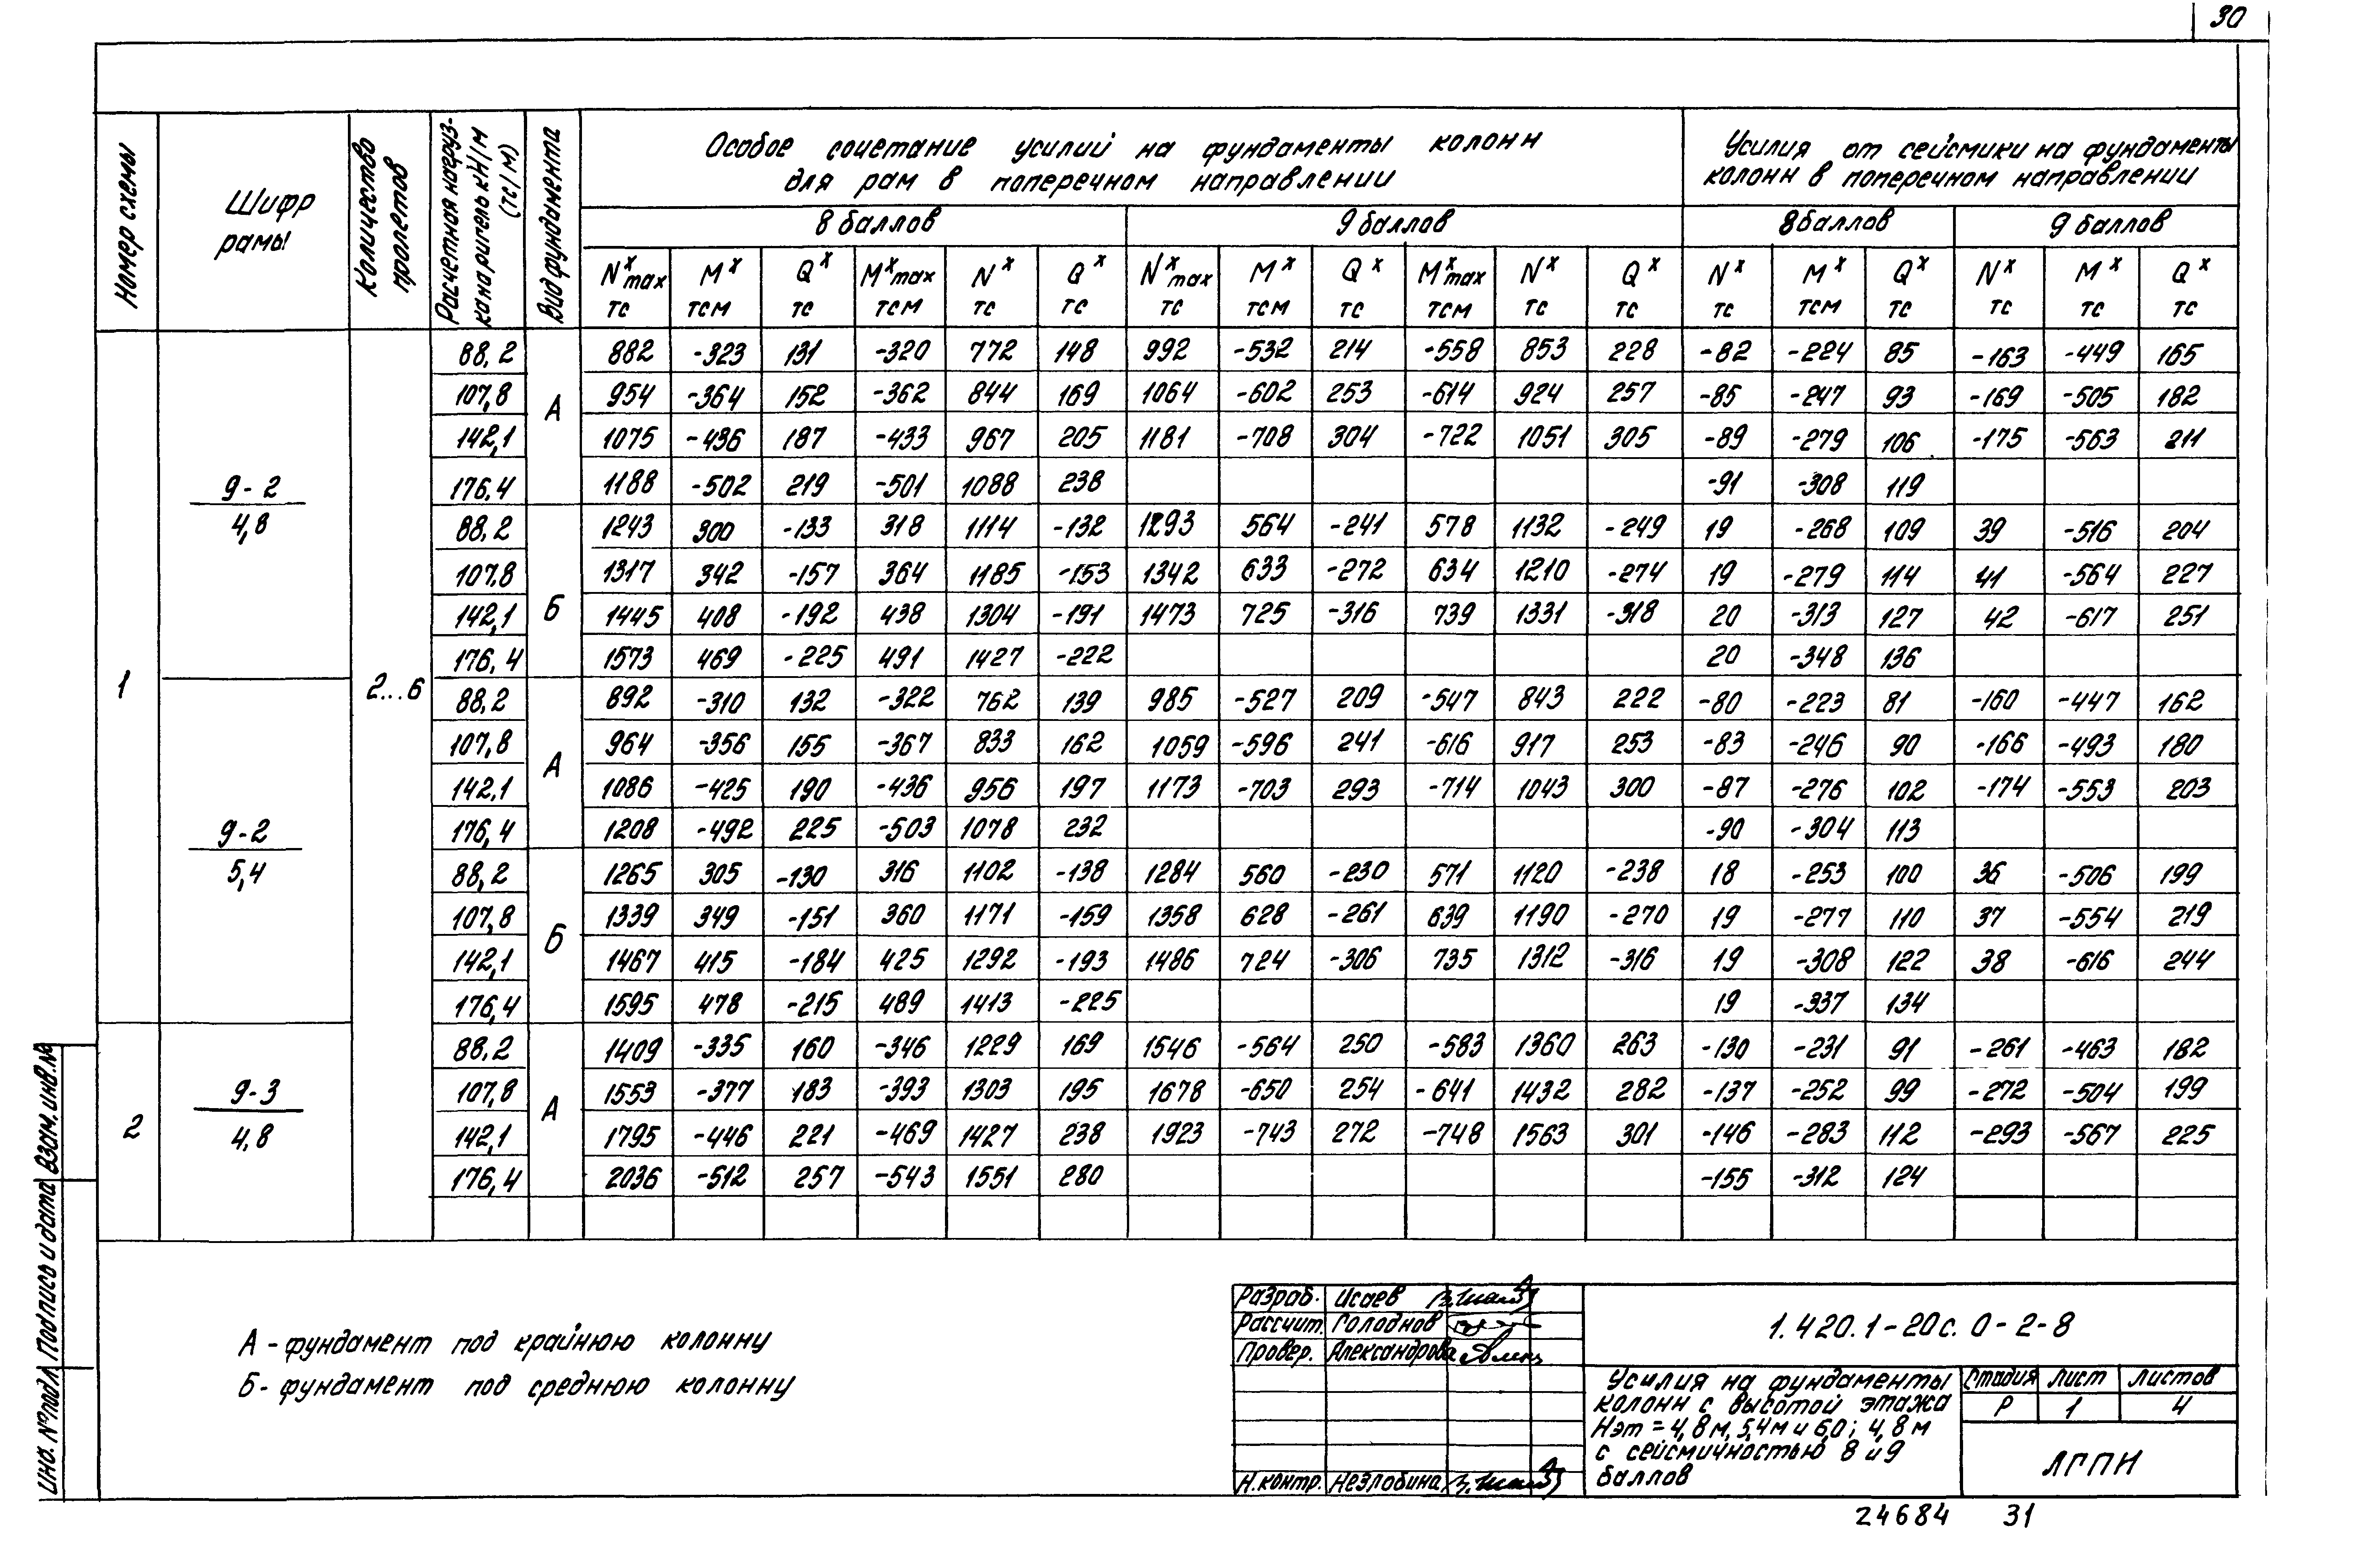 30
Номер схемы
Шифр рамы
Количество пролетов
Расчетная нагруз-
ка на ригель кН/м
(тс/м)
Вид фундамента
Особое сочетание усилий на фундаменты колонн
для рам в поперечном направлении
Усилия от сейсмики на фундаменты
колонн в поперечном направлении
8 баллов 9 баллов 8 баллов 9 баллов
Nˣmax Mˣ Qˣ Mˣmax Nˣ Qˣ Nˣmax Mˣ Qˣ Mˣmax Nˣ Qˣ Nˣ Mˣ Qˣ Nˣ Mˣ Qˣ
тс тсм тс тсм тс тс тс тсм тс тсм тс тс тс тсм тс тс тс тс
1
2...6
9-2
4,8
А
88,2 882 -323 131 -320 772 148 992 -532 214 -558 853 228 -82 -224 85 -163 -449 165
107,8 954 -364 152 -362 844 169 1064 -602 253 -614 924 257 -85 -247 93 -169 -505 182
142,1 1075 -436 187 -433 967 205 1181 -708 304 -722 1051 305 -89 -279 106 -175 -563 211
176,4 1188 -502 219 -501 1088 238 -91 -308 119
Б
88,2 1243 300 -133 318 1114 -132 1293 564 -241 578 1132 -249 19 -268 109 39 -516 204
107,8 1317 342 -157 364 1185 -153 1342 633 -272 634 1210 -274 19 -279 114 41 -564 227
142,1 1445 408 -192 438 1304 -191 1473 725 -316 739 1331 -318 20 -313 127 42 -617 251
176,4 1573 469 -225 491 1427 -222 20 -348 136
9-2
5,4
А
88,2 892 -310 132 -322 762 139 985 -527 209 -547 843 222 -80 -223 81 -160 -447 162
107,8 964 -356 155 -367 833 162 1059 -596 241 -616 917 253 -83 -246 90 -166 -493 180
142,1 1086 -425 190 -436 956 197 1173 -703 293 -714 1043 300 -87 -276 102 -174 -553 203
176,4 1208 -492 225 -503 1078 232 -90 -304 113
Б
88,2 1265 305 -130 316 1102 -138 1284 560 -230 571 1120 -238 18 -253 100 36 -506 199
107,8 1339 349 -151 360 1171 -159 1358 628 -261 639 1190 -270 19 -277 110 37 -554 219
142,1 1467 415 -184 425 1292 -193 1486 724 -306 735 1312 -316 19 -308 122 38 -616 244
176,4 1595 478 -215 489 1413 -225 19 -337 134
2
9-3
4,8
А
88,2 1409 -335 160 -346 1229 169 1546 -564 250 -583 1360 263 -130 -231 91 -261 -463 182
107,8 1553 -377 183 -393 1303 195 1678 -650 254 -641 1432 282 -137 -252 99 -272 -504 199
142,1 1795 -446 221 -469 1427 238 1923 -743 272 -748 1563 301 -146 -283 112 -293 -567 225
176,4 2036 -512 257 -543 1551 280 -155 -312 124
А - фундамент под крайнюю колонну
Б - фундамент под среднюю колонну
Разраб. Исаев
Рассчит. Голоднов
Провер. Александрова
Н.контр. Незлобина
1.420.1-20с. 0-2-8
Усилия на фундаменты
колонн с высотой этажа
Нэт = 4,8м, 5,4м и 6,0; 4,8м
с сейсмичностью 8 и 9
баллов
Стадия Лист Листов
Р 1 4
ЛГПИ
24684 31
Инв. № подл. Подпись и дата Взам. инв. №